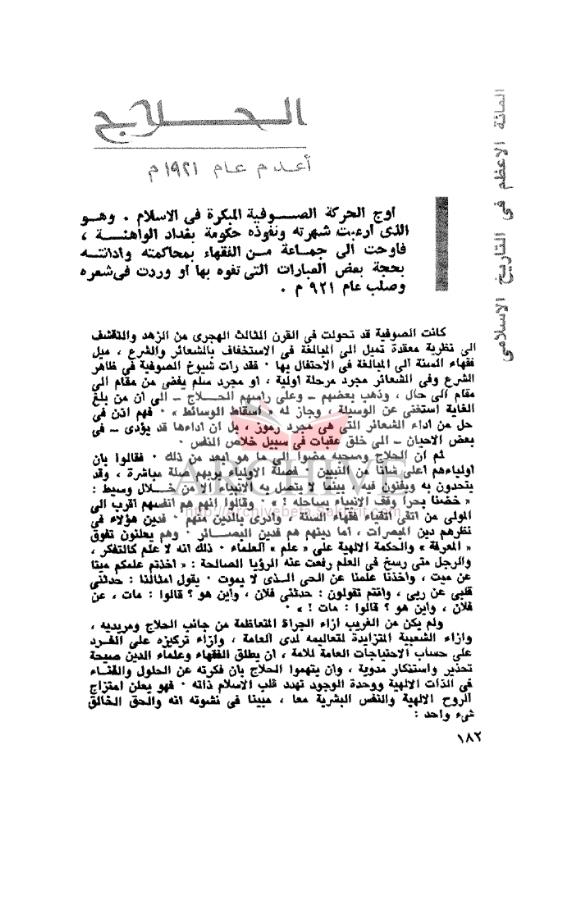 المائة الاعظم فى التاريخ الاسلامى
الحلاج
أعدم عام ٩٢١ م
اوج الحركة الصوفية المبكرة فى الاسلام . وهو
الذى ارعبت شهرته ونفوذه حكومة بغداد الواهنة ،
فاوحت الى جماعة من الفقهاء بمحاكمته وادانته
بحجة بعض العبارات التى تفوه بها او وردت فى شعره
وصلب عام ٩٢١ م .
كانت الصوفية قد تحولت فى القرن الثالث الهجرى من الزهد والتقشف
الى نظرية معقدة تميل الى المبالغة فى الاستخفاف بالشعائر والشرع ، ميل
فقهاء السنة الى المبالغة فى الاحتفال بها . فقد رات شيوخ الصوفية فى ظاهر
الشرع وفى الشعائر مجرد مرحلة اولية ، او مجرد سلم يفضى من مقام الى
مقام الى حال ، وذهب بعضهم – وعلى راسهم الحلاج – الى ان من بلغ
الغاية استغنى عن الوسيلة ، وجاز له « اسقاط الوسائط » . فهم اذن فى
حل من اداء الشعائر التى هى مجرد رموز . بل ان اداءها قد يؤدى – فى
بعض الاحيان – الى خلق عقبات فى سبيل خلاص النفس .
ثم ان الحلاج وصحبه مضوا الى ما هو ابعد من ذلك . فقالوا بان
اولياءهم اعلى شانا من النبيين . فصلة الاولياء بربهم صلة مباشرة ، وقد
يتحدون به ويفنون فيه ، بينما لا يتصل به الانبياء الا من خلال وسيط :
« خضنا بحرا وقف الانبياء بساحله ! » . وقالوا إنهم هم انفسهم اقرب الى
المولى من اتقى اتقياء فقهاء السنة ، وادرى بالدين منهم . فدين هؤلاء فى
نظرهم دين المبصرات ، اما دينهم هم فدين البصائر . وهم يعلنون تفوق
« المعرفة » والحكمة الالهية على « علم » العلماء . ذلك انه لا علم كالتفكر ،
والرجل متى رسخ فى العلم رفعت عنه الرؤيا الصالحة : « اخذتم علمكم ميتا
عن ميت ، واخذنا علمنا عن الحى الذى لا يموت . يقول امثالنا : حدثنى
قلبى عن ربى ، وانتم تقولون : حدثنى فلان ، واين هو ؟ قالوا : مات ، عن
فلان ، واين هو ؟ قالوا : مات ! » .
ولم يكن من الغريب ازاء الجراة المتعاظمة من جانب الحلاج ومريديه ،
وازاء الشعبية المتزايدة لتعاليمه لدى العامة ، وازاء تركيزه على الفرد
على حساب الاحتياجات العامة للامة ، ان يطلق الفقهاء وعلماء الدين صيحة
تحذير واستنكار مدوية ، وان يتهموا الحلاج بان فكرته عن الحلول والفناء
فى الذات الالهية ووحدة الوجود تهدد قلب الاسلام ذاته . فهو يعلن امتزاج
الروح الالهية والنفس البشرية معا ، مبينا فى نشوته انه والحق الخالق
شىء واحد :
١٨٢
ARCHIVE